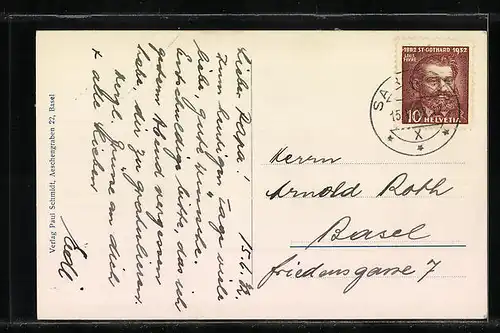 Verlag Paul Schmidt, Aeschengraben 22, Basel
15.6.32.
Lieber Papa!
Zum heutigen Tage viele
liebe, gute Wünsche.
Entschuldige bitte, das ich
gestern Abend vergessen
habe, dir zu gratulieren.
Herzl. Grüsse an dich
+ alle Lieben
1882 ST. GOTHARD 1932
LOUIS FAVRE
10 HELVETIA
15.
X
Herrn
Arnold Roth
Basel
Friedensgasse 7